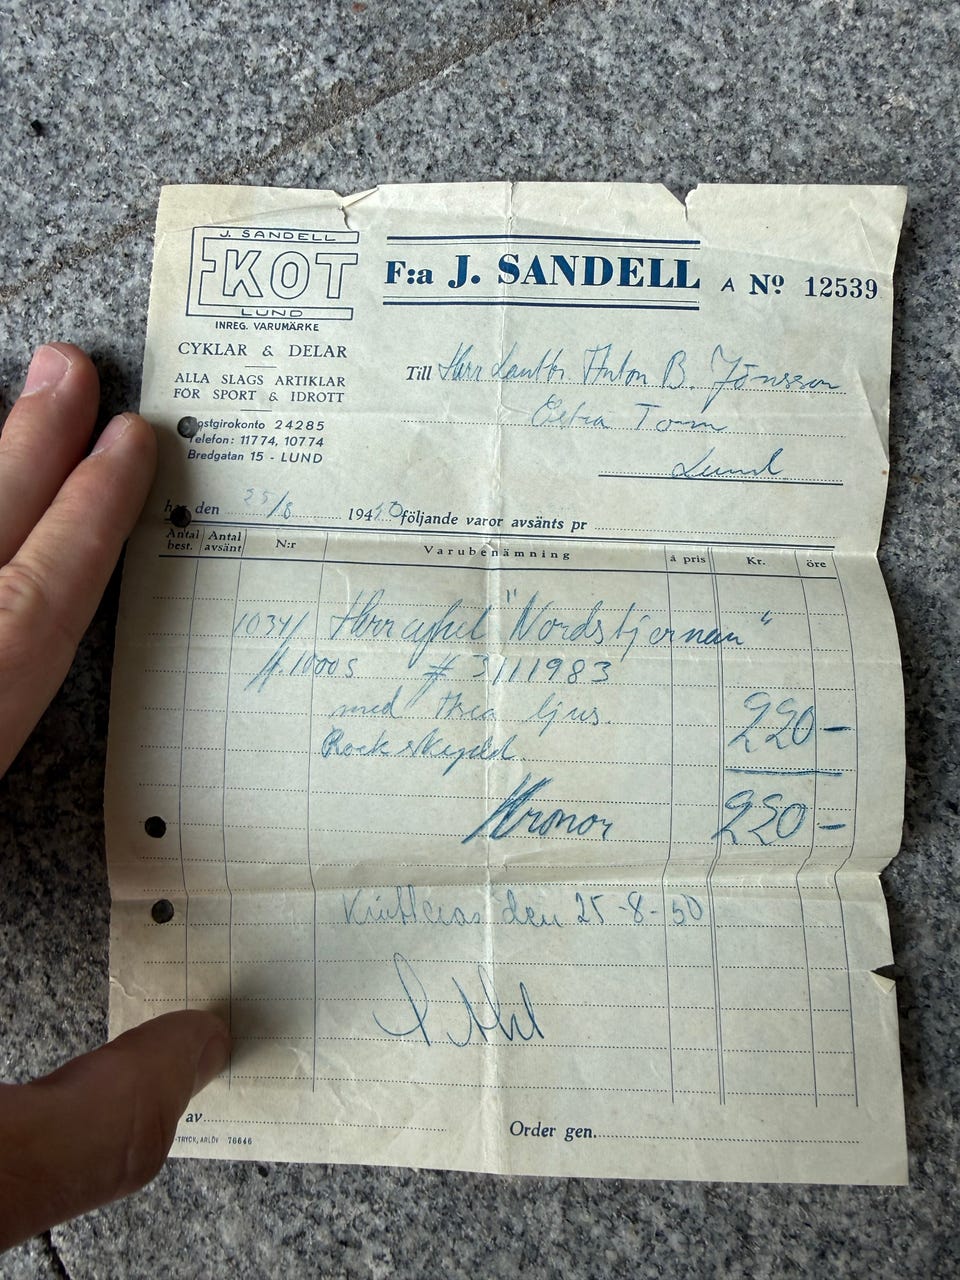 J. SANDELL
EKOT
LUND
INREG. VARUMÄRKE
CYKLAR & DELAR
ALLA SLAGS ARTIKLAR
FÖR SPORT & IDROTT
Postgirokonto 24285
Telefon: 11774, 10774
Bredgatan 15 - LUND
F:a J. SANDELL A Nº 12539
Till Herr Lantbr. Anton B. Jönsson
Östra Torn
Lund
den 25/8 1950 följande varor avsänts pr
Antal best. Antal avsänt N:r Varubenämning à pris Kr. öre
10341 Herrcykel "Nordstjernan"
1000 S # 3111983
med Acca ljus.
Rockskydd 220 -
Kronor 220 -
Kvitteras den 25-8-50
av
Order gen.
-TRYCK, ARLÖV 76646